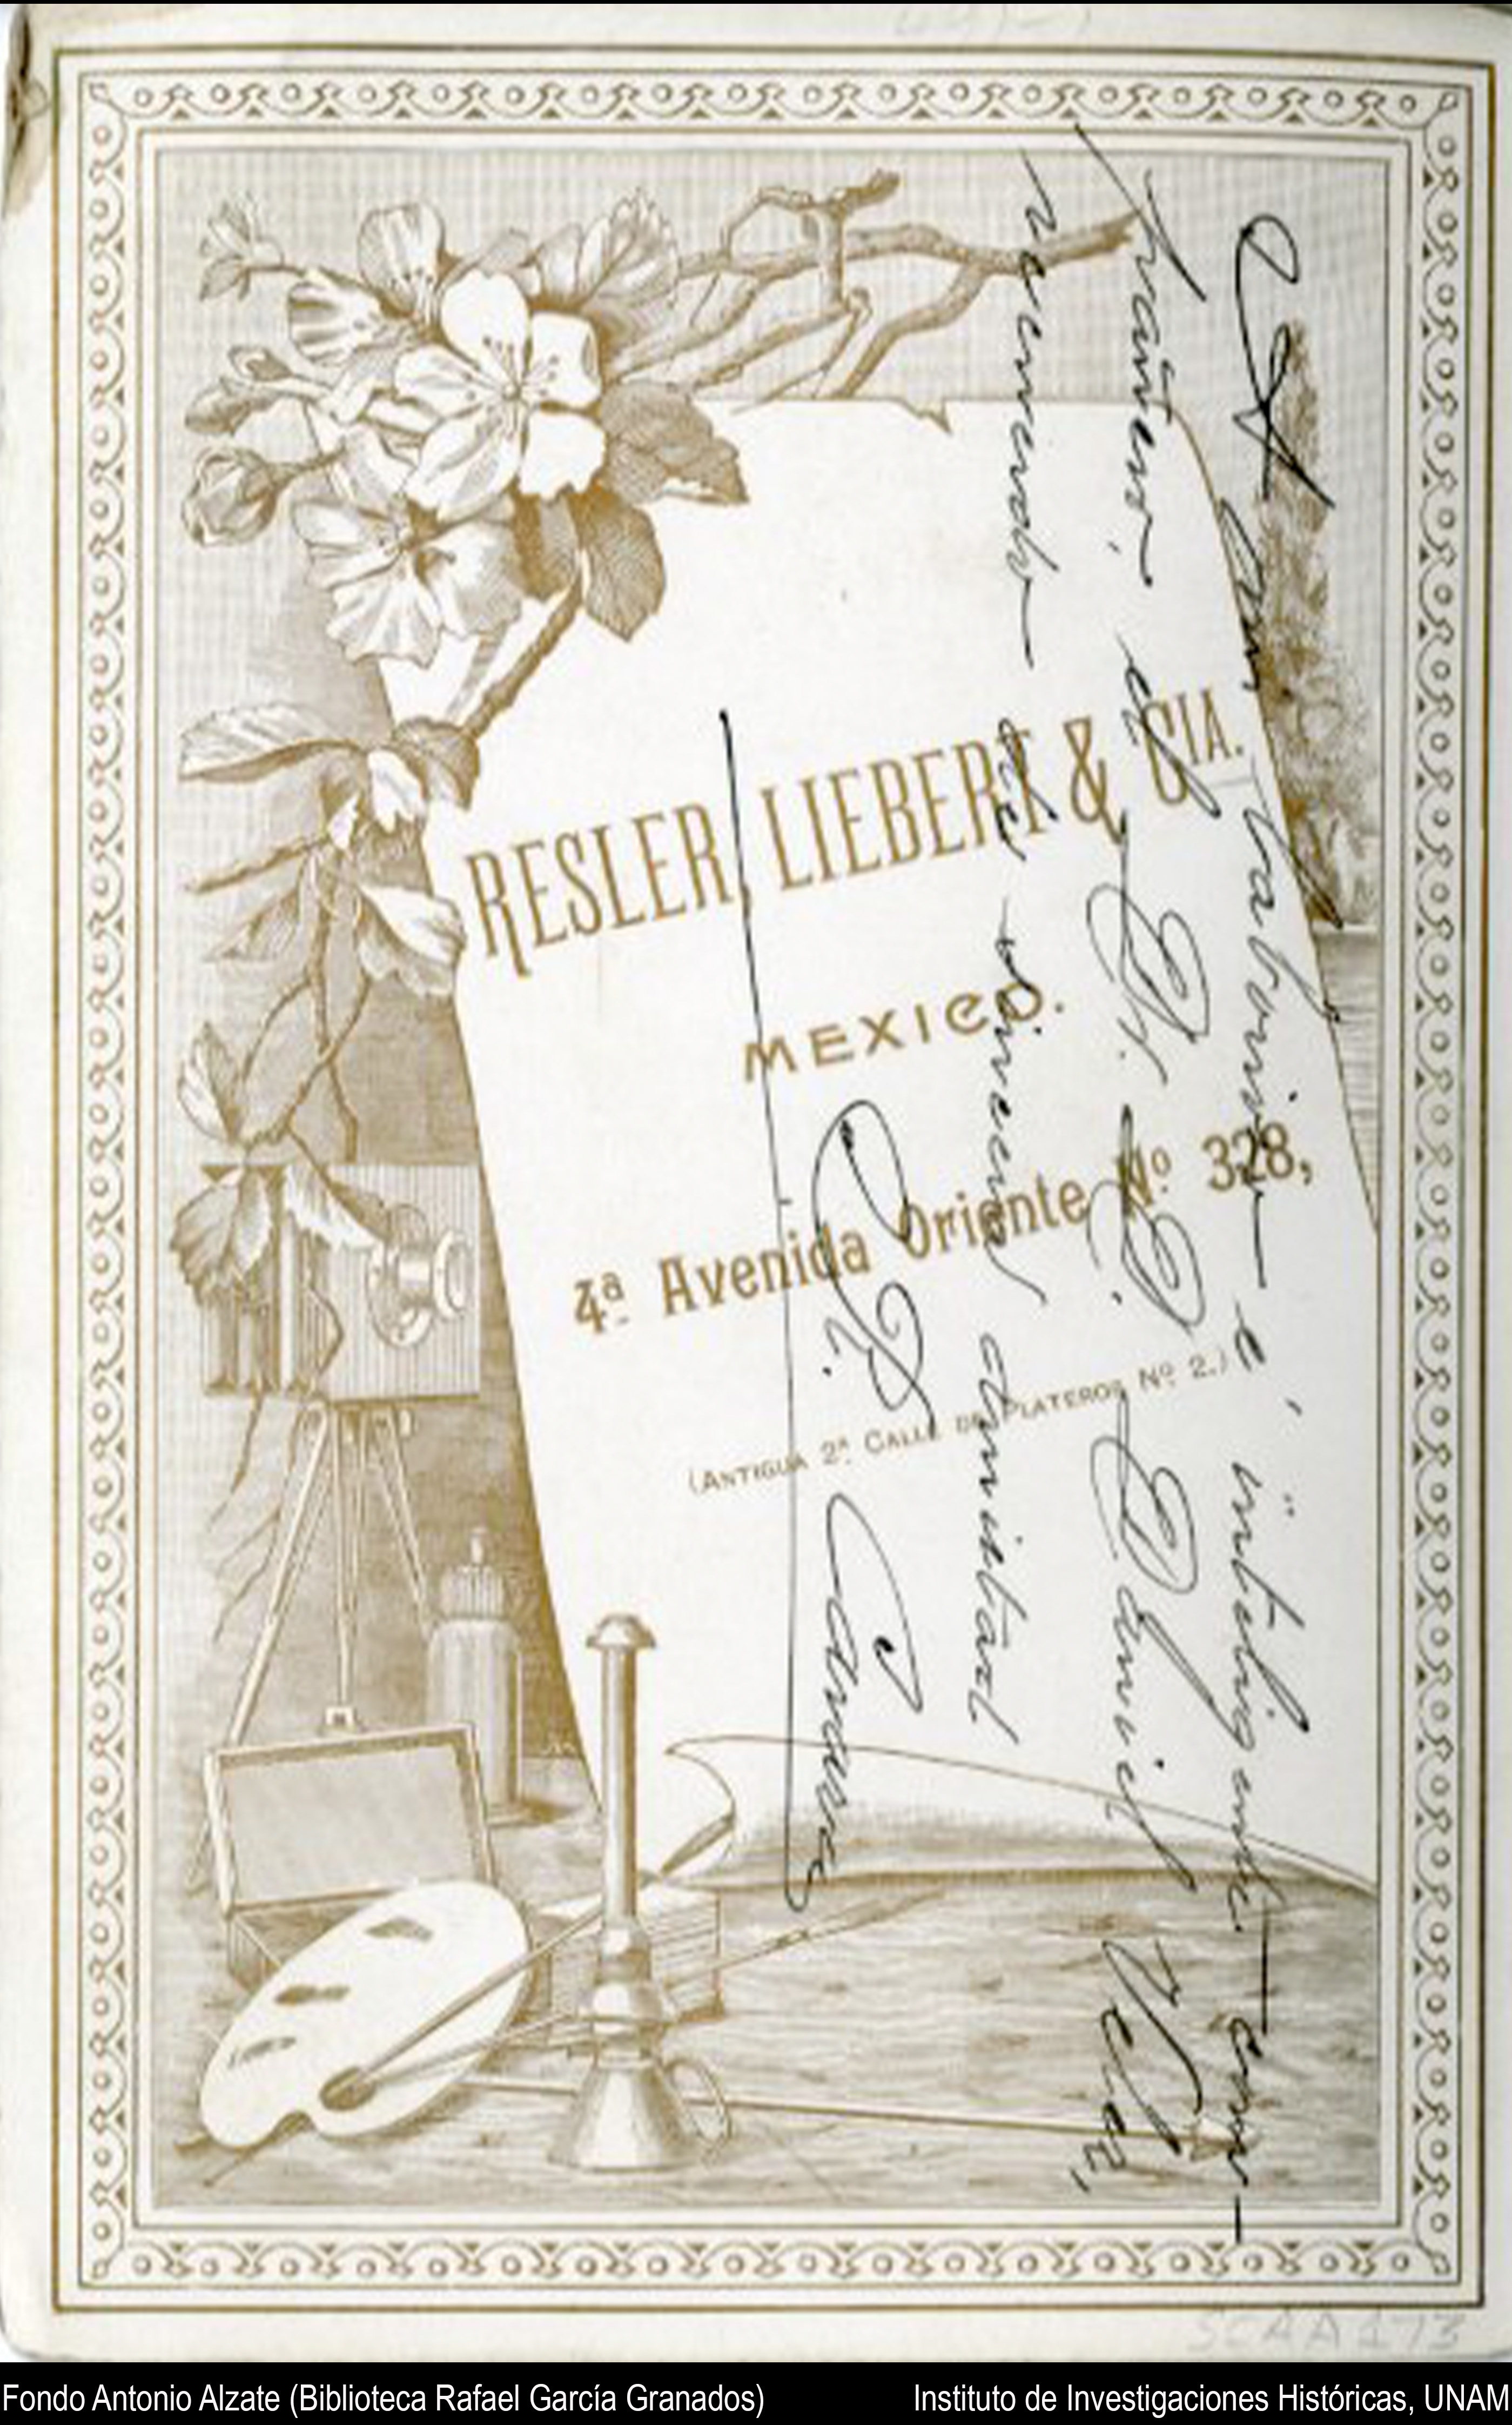 RESLER, LIEBERT & CIA.
MEXICO.
4ª Avenida Oriente Nº 328,
(ANTIGUA 2ª CALLE DE PLATEROS Nº 2.)
A laborioso é inteligente com-
pañero, el Dr. D. Daniel Velez,
recuerdo de sincera amistad
SCAA173
Fondo Antonio Alzate (Biblioteca Rafael García Granados)
Instituto de Investigaciones Históricas, UNAM